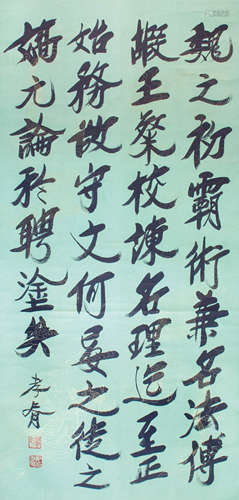 魏之初霸術兼名法傅
嘏王粲校練名理迄至正
始務欲守文何晏之徒之
元論於聘塗矣
孝胥